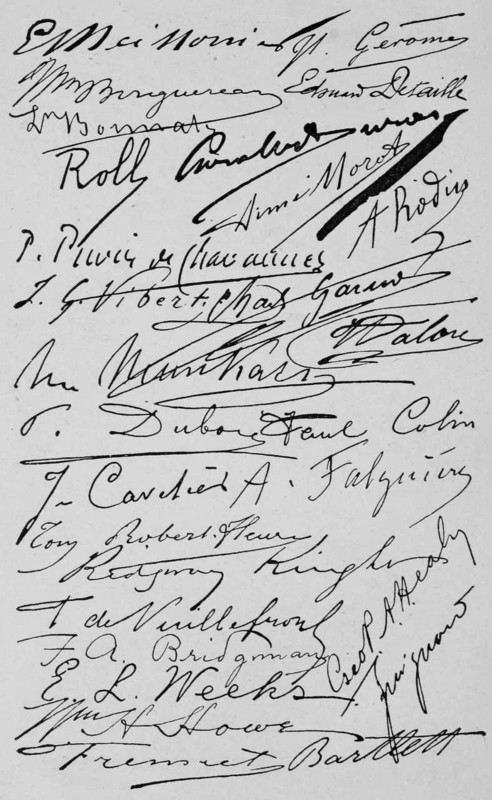 E Meissonier J L. Gerôme
Wm Bouguereau Edouard Detaille
Ln Bonnat
Roll Carolus Duran
Aimé Morot
A Rodin
P. Puvis de Chavannes
J. G. Vibert. Charles Garnier
Dalou
M. Munkacsy
P. Dubois Paul Colin
J. Cavelier A. Falguière
Tony Robert-Fleury
Ridgway Knight
F de Vuillefroy
Geo. P. A. Healy
F. A. Bridgman
Guignard
E. L. Weeks
Wm H Howe
Truman Bartlett